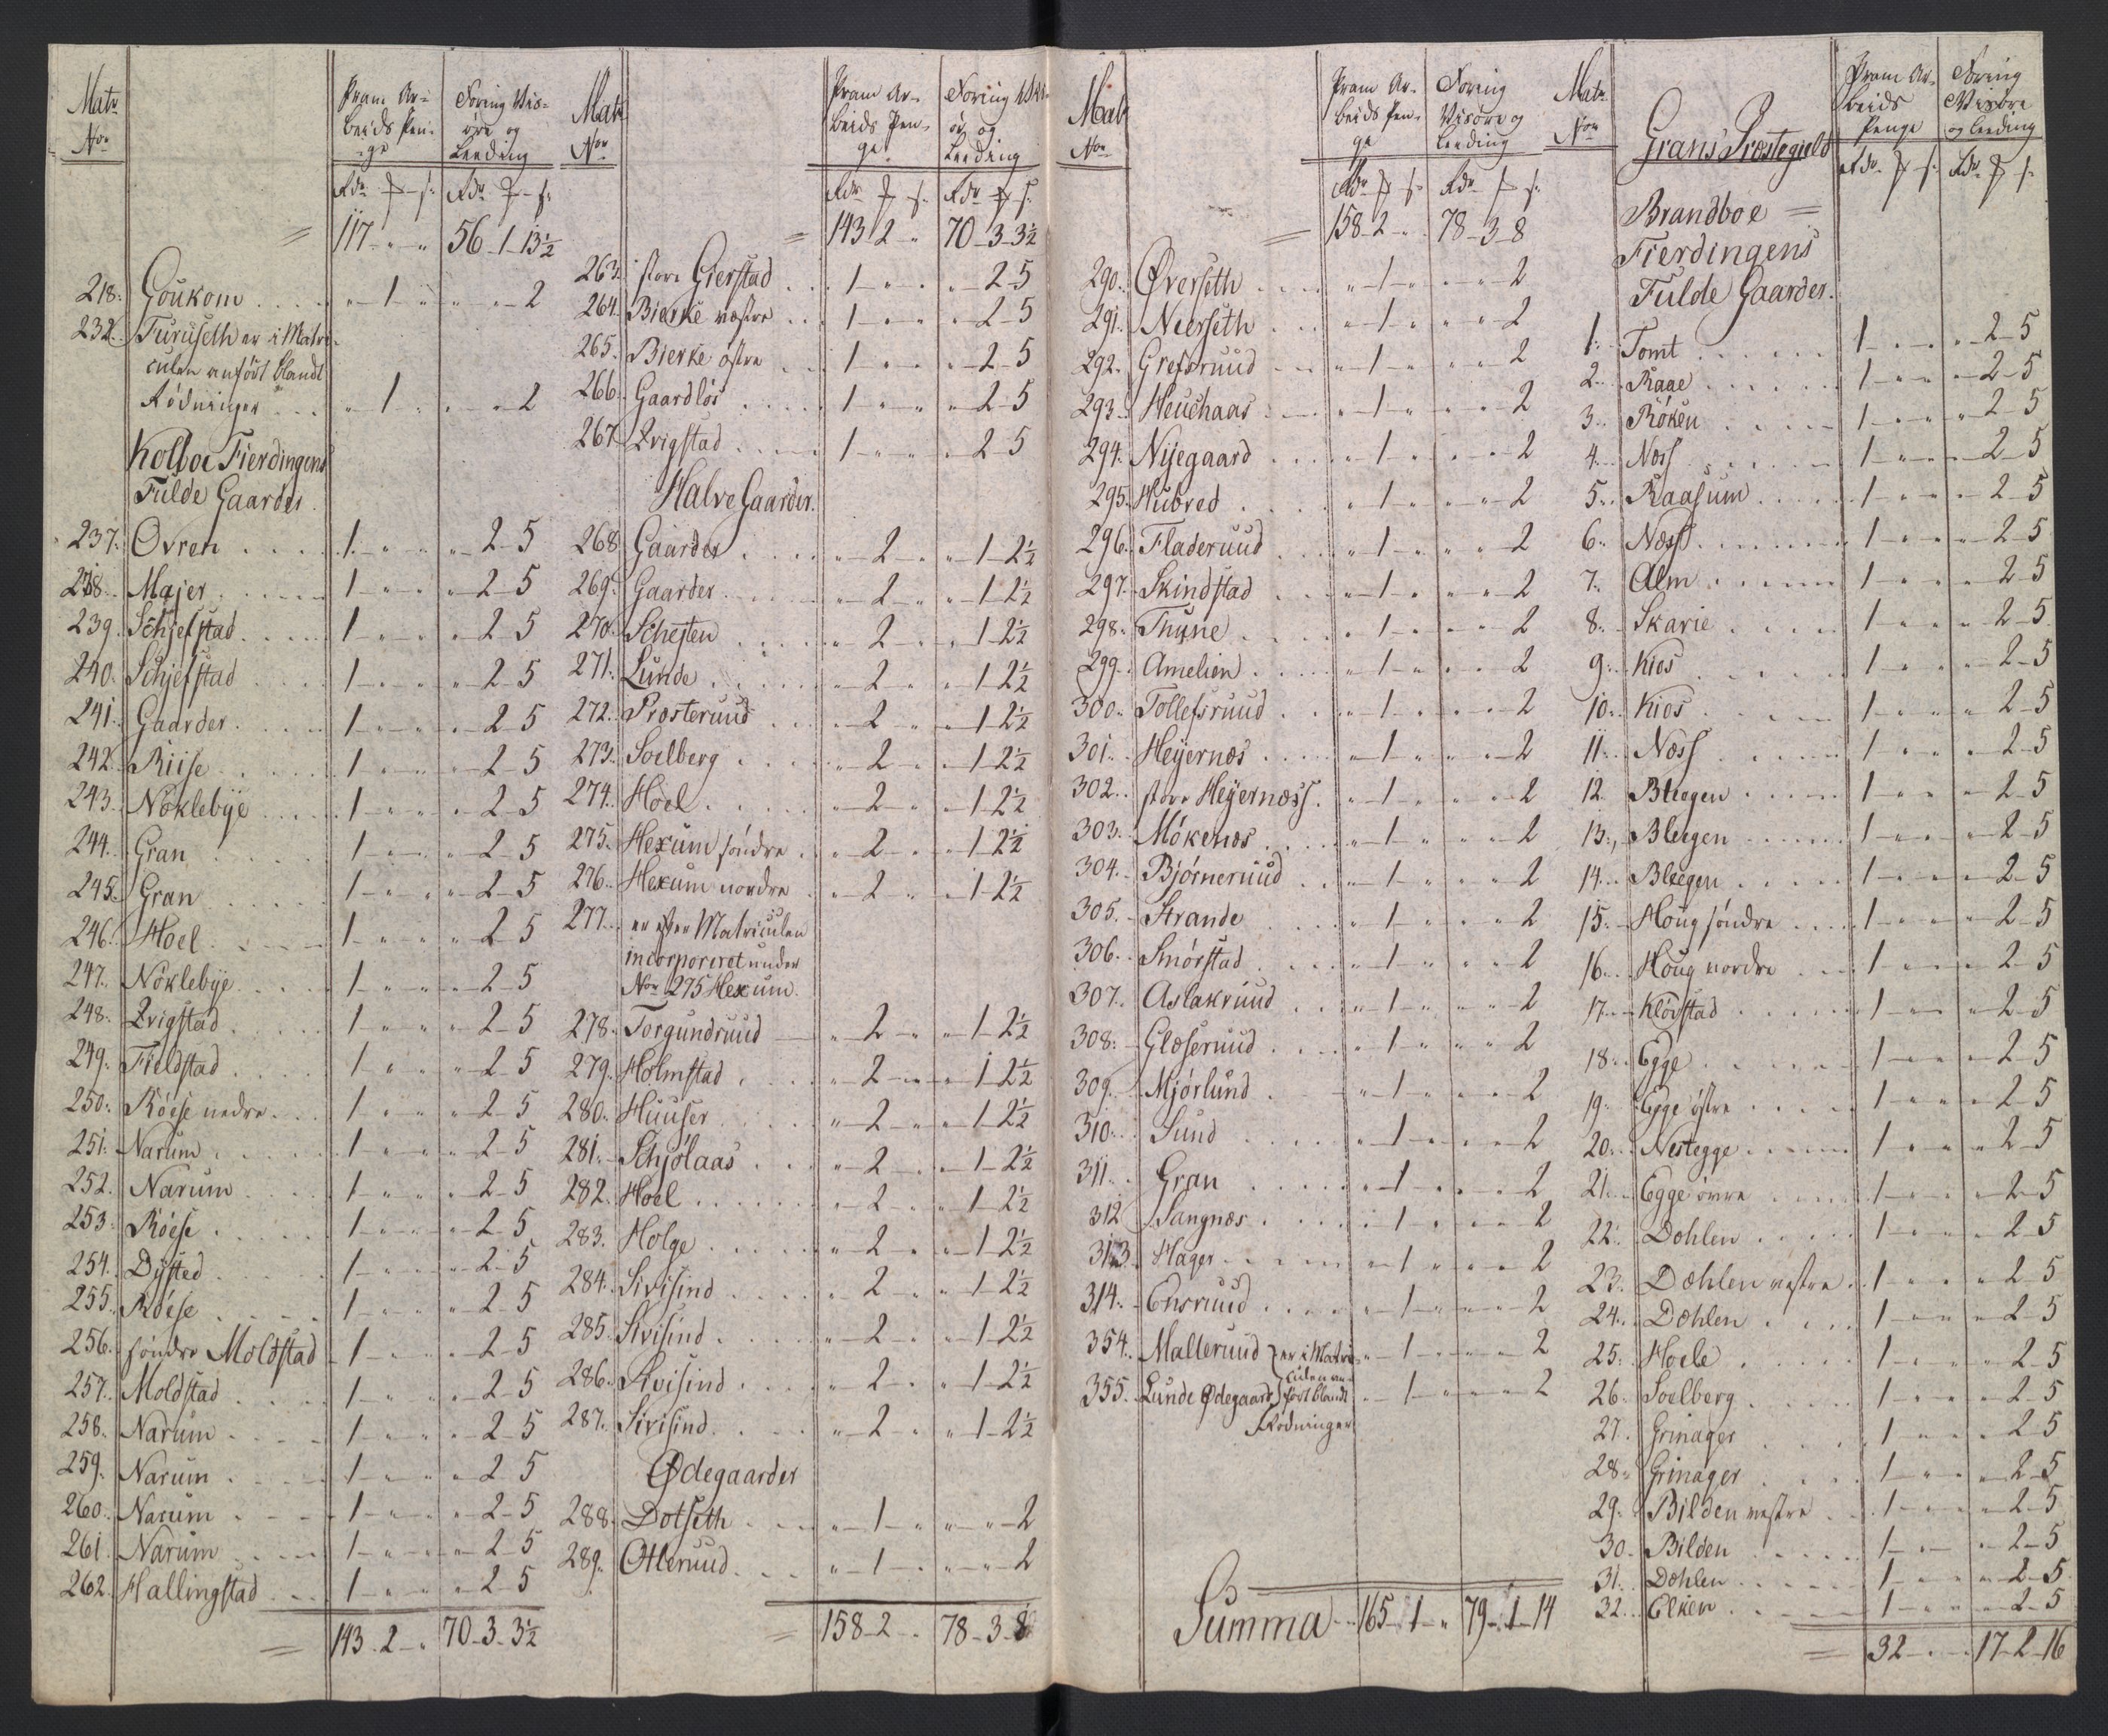 Matr
No
Pram Ar-
beids Pen-
ge
Foring Vis-
øre og
Leeding
Rdr. # - s. Rdr. # - s.
= 117 - " " 56 - 1 - 13½
218. Goukom " - 1 - " " - " - 2
232. Furuseth er i Matri-
culen anført blandt
Rødninger " - 1 - " " - " - 2
Kolboe Fierdingens
Fulde Gaarder.
237. Ovren 1 - " - " " - 2 - 5
238. Majer 1 - " - " " - 2 - 5
239. Schjefstad 1 - " - " " - 2 - 5
240. Schjefstad 1 - " - " " - 2 - 5
241. Gaarder 1 - " - " " - 2 - 5
242. Riise 1 - " - " " - 2 - 5
243. Nøklebÿe 1 - " - " " - 2 - 5
244. Gran 1 - " - " " - 2 - 5
245. Gran 1 - " - " " - 2 - 5
246. Hoel 1 - " - " " - 2 - 5
247. Nøklebÿe 1 - " - " " - 2 - 5
248. Evigstad 1 - " - " " - 2 - 5
249. Fieldstad 1 - " - " " - 2 - 5
250. Røese nedre 1 - " - " " - 2 - 5
251. Narum 1 - " - " " - 2 - 5
252. Narum 1 - " - " " - 2 - 5
253. Røese 1 - " - " " - 2 - 5
254. Dÿsted 1 - " - " " - 2 - 5
255. Røese 1 - " - " " - 2 - 5
256. søndre Moldstad 1 - " - " " - 2 - 5
257. Moldstad 1 - " - " " - 2 - 5
258. Narum 1 - " - " " - 2 - 5
259. Narum 1 - " - " " - 2 - 5
260. Narum 1 - " - " " - 2 - 5
261. Narum 1 - " - " " - 2 - 5
262. Hallingstad 1 - " - " " - 2 - 5
= 143 - 2 - " 70 - 3 - 3½
Matr
No
Pram Ar-
beids Pen-
ge.
Foring Vis-
ør og
Leeding
Rdr. # - s. Rdr. # - s.
= 143 - 2 - " 70 - 3 - 3½
263. store Gierstad 1 - " - " " - 2 - 5
264. Bierke vestre 1 - " - " " - 2 - 5
265. Bierke østre 1 - " - " " - 2 - 5
266. Gaardløs 1 - " - " " - 2 - 5
267. Evigstad 1 - " - " " - 2 - 5
Halve Gaarder.
268. Gaarder " - 2 - " " - 1 - 2½
269. Gaarder " - 2 - " " - 1 - 2½
270. Schejten " - 2 - " " - 1 - 2½
271. Lunde " - 2 - " " - 1 - 2½
272. Prosteruud " - 2 - " " - 1 - 2½
273. Soelberg " - 2 - " " - 1 - 2½
274. Hoel " - 2 - " " - 1 - 2½
275. Hexum søndre " - 2 - " " - 1 - 2½
276. Hexum nordre " - 2 - " " - 1 - 2½
277. er efter Matriculen
incorporeret under
No 275 Hexum.
278. Torgundruud " - 2 - " " - 1 - 2½
279. Holmstad " - 2 - " " - 1 - 2½
280. Huuser " - 2 - " " - 1 - 2½
281. Schjølaas " - 2 - " " - 1 - 2½
282. Hoel " - 2 - " " - 1 - 2½
283. Holge " - 2 - " " - 1 - 2½
284. Sivisind " - 2 - " " - 1 - 2½
285. Sivisind " - 2 - " " - 1 - 2½
286. Sivisind " - 2 - " " - 1 - 2½
287. Sivisind " - 2 - " " - 1 - 2½
Ødegaarder
288. Dotseth " - 1 - " " - " - 2
289. Otteruud " - 1 - " " - " - 2
= 158 - 2 - " 78 - 3 - 8
Matr
No
Pram Ar-
beids Pen-
ge
Foring
Visøre og
Leeding
Rdr # - s. Rdr. # - s.
= 158 - 2 - " 78 - 3 - 8
290. Øverseth " - 1 - " " - " - 2
291. Neerseth " - 1 - " " - " - 2
292. Grefsruud " - 1 - " " - " - 2
293. Heuchaas " - 1 - " " - " - 2
294. Nÿegaard " - 1 - " " - " - 2
295. Hubred " - 1 - " " - " - 2
296. Fladeruud " - 1 - " " - " - 2
297. Skindstad " - 1 - " " - " - 2
298. Thune " - 1 - " " - " - 2
299. Amelien " - 1 - " " - " - 2
300. Tollefsruud " - 1 - " " - " - 2
301. Heÿernæs " - 1 - " " - " - 2
302. store Heÿernæss " - 1 - " " - " - 2
303. Møkenæs " - 1 - " " - " - 2
304. Bjørneruud " - 1 - " " - " - 2
305. Strande " - 1 - " " - " - 2
306. Smørstad " - 1 - " " - " - 2
307. Aslakruud " - 1 - " " - " - 2
308. Glæseruud " - 1 - " " - " - 2
309. Mjørlund " - 1 - " " - " - 2
310. Sund " - 1 - " " - " - 2
311. Gran " - 1 - " " - " - 2
312. Sangnæs " - 1 - " " - " - 2
313. Hager " - 1 - " " - " - 2
314. Ensruud " - 1 - " " - " - 2
354. Malleruud } er i Matri- " - 1 - " " - " - 2
culen an-
355. Lunde Ødegaard } ført blandt " - 1 - " " - " - 2
Rødninger
Summa 165 - 1 - " 79 - 1 - 14
Matr.
No
Grans Præstegield
Pram Ar-
beids
Penge
Foring
Visøre
og Leeding
Rdr. # - s. Rdr. # - s.
Brandboe =
Fierdingens
Fulde Gaarder.
1. Tomt 1 - " - " " - 2 - 5
2. Raae 1 - " - " " - 2 - 5
3. Røken 1 - " - " " - 2 - 5
4. Næss 1 - " - " " - 2 - 5
5. Raasum 1 - " - " " - 2 - 5
6. Næss 1 - " - " " - 2 - 5
7. Alm 1 - " - " " - 2 - 5
8. Skarie 1 - " - " " - 2 - 5
9. Kios 1 - " - " " - 2 - 5
10. Kios 1 - " - " " - 2 - 5
11. Næss 1 - " - " " - 2 - 5
12. Bleegen 1 - " - " " - 2 - 5
13. Bleegen 1 - " - " " - 2 - 5
14. Bleegen 1 - " - " " - 2 - 5
15. Houg søndre 1 - " - " " - 2 - 5
16. Houg nordre 1 - " - " " - 2 - 5
17. Kløvstad 1 - " - " " - 2 - 5
18. Egge 1 - " - " " - 2 - 5
19. Egge østre 1 - " - " " - 2 - 5
20. Nestegge 1 - " - " " - 2 - 5
21. Egge øvre 1 - " - " " - 2 - 5
22. Dæhlen 1 - " - " " - 2 - 5
23. Dæhlen vestre 1 - " - " " - 2 - 5
24. Dæhlen 1 - " - " " - 2 - 5
25. Hoele 1 - " - " " - 2 - 5
26. Soelberg 1 - " - " " - 2 - 5
27. Grinager 1 - " - " " - 2 - 5
28. Grinager 1 - " - " " - 2 - 5
29. Bilden vestre 1 - " - " " - 2 - 5
30. Bilden 1 - " - " " - 2 - 5
31. Dæhlen 1 - " - " " - 2 - 5
32. Elken 1 - " - " " - 2 - 5
= 32 - " - " 17 - 2 - 16